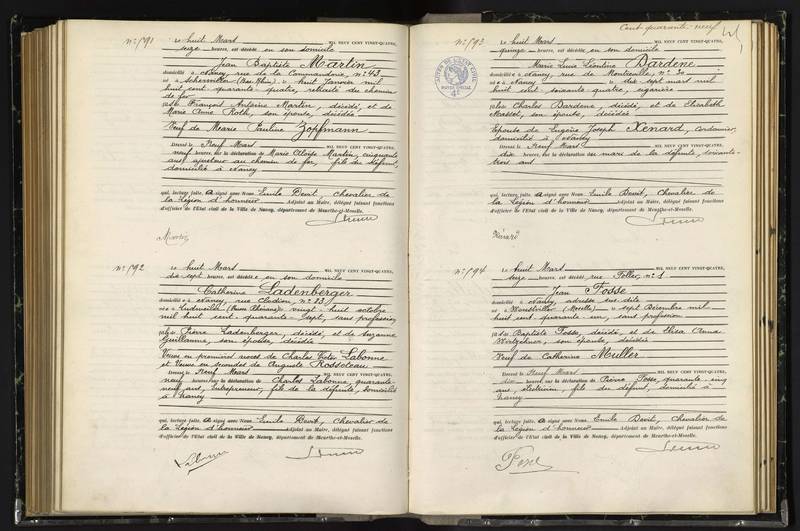 N° 591
Le huit Mars MIL NEUF CENT VINGT-QUATRE,
seize heures, est décédé en son domicile
Jean Baptiste Martin
domicilié à Nancy, rue de la Commanderie, n° 43
né à (Bas-Rhin) le huit Janvier mil
huit cent quarante-quatre, retraité du chemin
de fer
fils de François Antoine Martin, décédé, et de
Marie Anne Roth, son épouse, décédée
Veuf de Marie Pauline Zopfmann
Dressé le Neuf Mars MIL NEUF CENT VINGT-QUATRE,
neuf heures, sur la déclaration de Marie Martin, cinquante
ans, ajusteur au chemin de fer, fils du défunt,
domicilié à Nancy
qui, lecture faite, a signé avec Nous Emile Devit, Chevalier de
la Légion d'honneur Adjoint au Maire, délégué faisant fonctions
d'officier de l'Etat civil de la Ville de Nancy, département de Meurthe-et-Moselle.
Martin
N° 592
Le huit Mars MIL NEUF CENT VINGT-QUATRE,
dix sept heures, est décédée en son domicile
Catherine Ladenberger
domiciliée à Nancy, rue Clodion, n° 23
née à (Prusse Rhénane) vingt-huit octobre
mil huit cent quarante-sept, sans profession,
fille de Pierre Ladenberger, décédé, et de Suzanne
Guillaume, son épouse, décédée
Veuve en premières noces de Charles Victor Labonne
et Veuve en secondes de Auguste Rossoleau
Dressé le Neuf Mars MIL NEUF CENT VINGT-QUATRE,
neuf heures, sur la déclaration de Charles Labonne, quarante-
neuf ans, Entrepreneur, fils de la défunte, domicilié
à Nancy
qui, lecture faite, a signé avec Nous Emile Devit, Chevalier de
la Légion d'honneur Adjoint au Maire, délégué faisant fonctions
d'officier de l'Etat civil de la Ville de Nancy, département de Meurthe-et-Moselle.
Labonne
Cent quarante-neuf
N° 593
Le huit Mars MIL NEUF CENT VINGT-QUATRE,
quinze heures, est décédée en son domicile
Marie Lucie Léontine Dardene
domiciliée à Nancy, rue de, n° 20
née à Nancy le sept mars mil
huit cent soixante quatre, cigarière
fille de Charles Dardene, décédé, et de Elisabeth
Masson, son épouse, décédée
Epouse de Eugène Joseph Xenard, cordonnier,
domicilié à Nancy
Dressé le Neuf Mars MIL NEUF CENT VINGT-QUATRE,
dix heures, sur la déclaration du mari de la défunte, soixante-
trois ans
qui, lecture faite, a signé avec Nous Emile Devit, Chevalier de
la Légion d'honneur Adjoint au Maire, délégué faisant fonctions
d'officier de l'Etat civil de la Ville de Nancy, département de Meurthe-et-Moselle.
Xénard
N° 594
Le huit Mars MIL NEUF CENT VINGT-QUATRE,
seize heures, est décédé rue Foller, n° 1
Jean Fosse
domicilié à Nancy, adresse sus-dite
né à (Moselle) le sept Décembre mil
huit cent quarante-un, sans profession
fils de Baptiste Fosse, décédé, et de Elisa Anna
son épouse, décédée
Veuf de Catherine Muller
Dressé le Neuf Mars MIL NEUF CENT VINGT-QUATRE,
dix heures, sur la déclaration de Pierre Fosse, quarante cinq
ans, Electricien, fils du défunt, domicilié à
Nancy
qui, lecture faite, a signé avec Nous Emile Devit, Chevalier de
la Légion d'honneur Adjoint au Maire, délégué faisant fonctions
d'officier de l'Etat civil de la Ville de Nancy, département de Meurthe-et-Moselle.